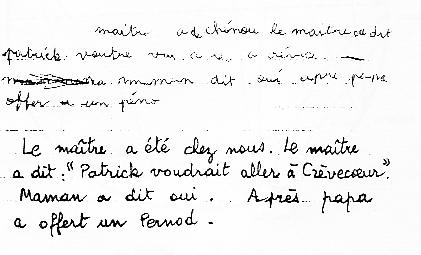 maitre a dchénou le maitre a dit
patrick voutre
maman dit oui apre papa
offer a un péno
Le maître a été chez nous. Le maître
a dit : "Patrick voudrait aller à Crèvecœur".
Maman a dit oui. Après papa
a offert un Pernod.